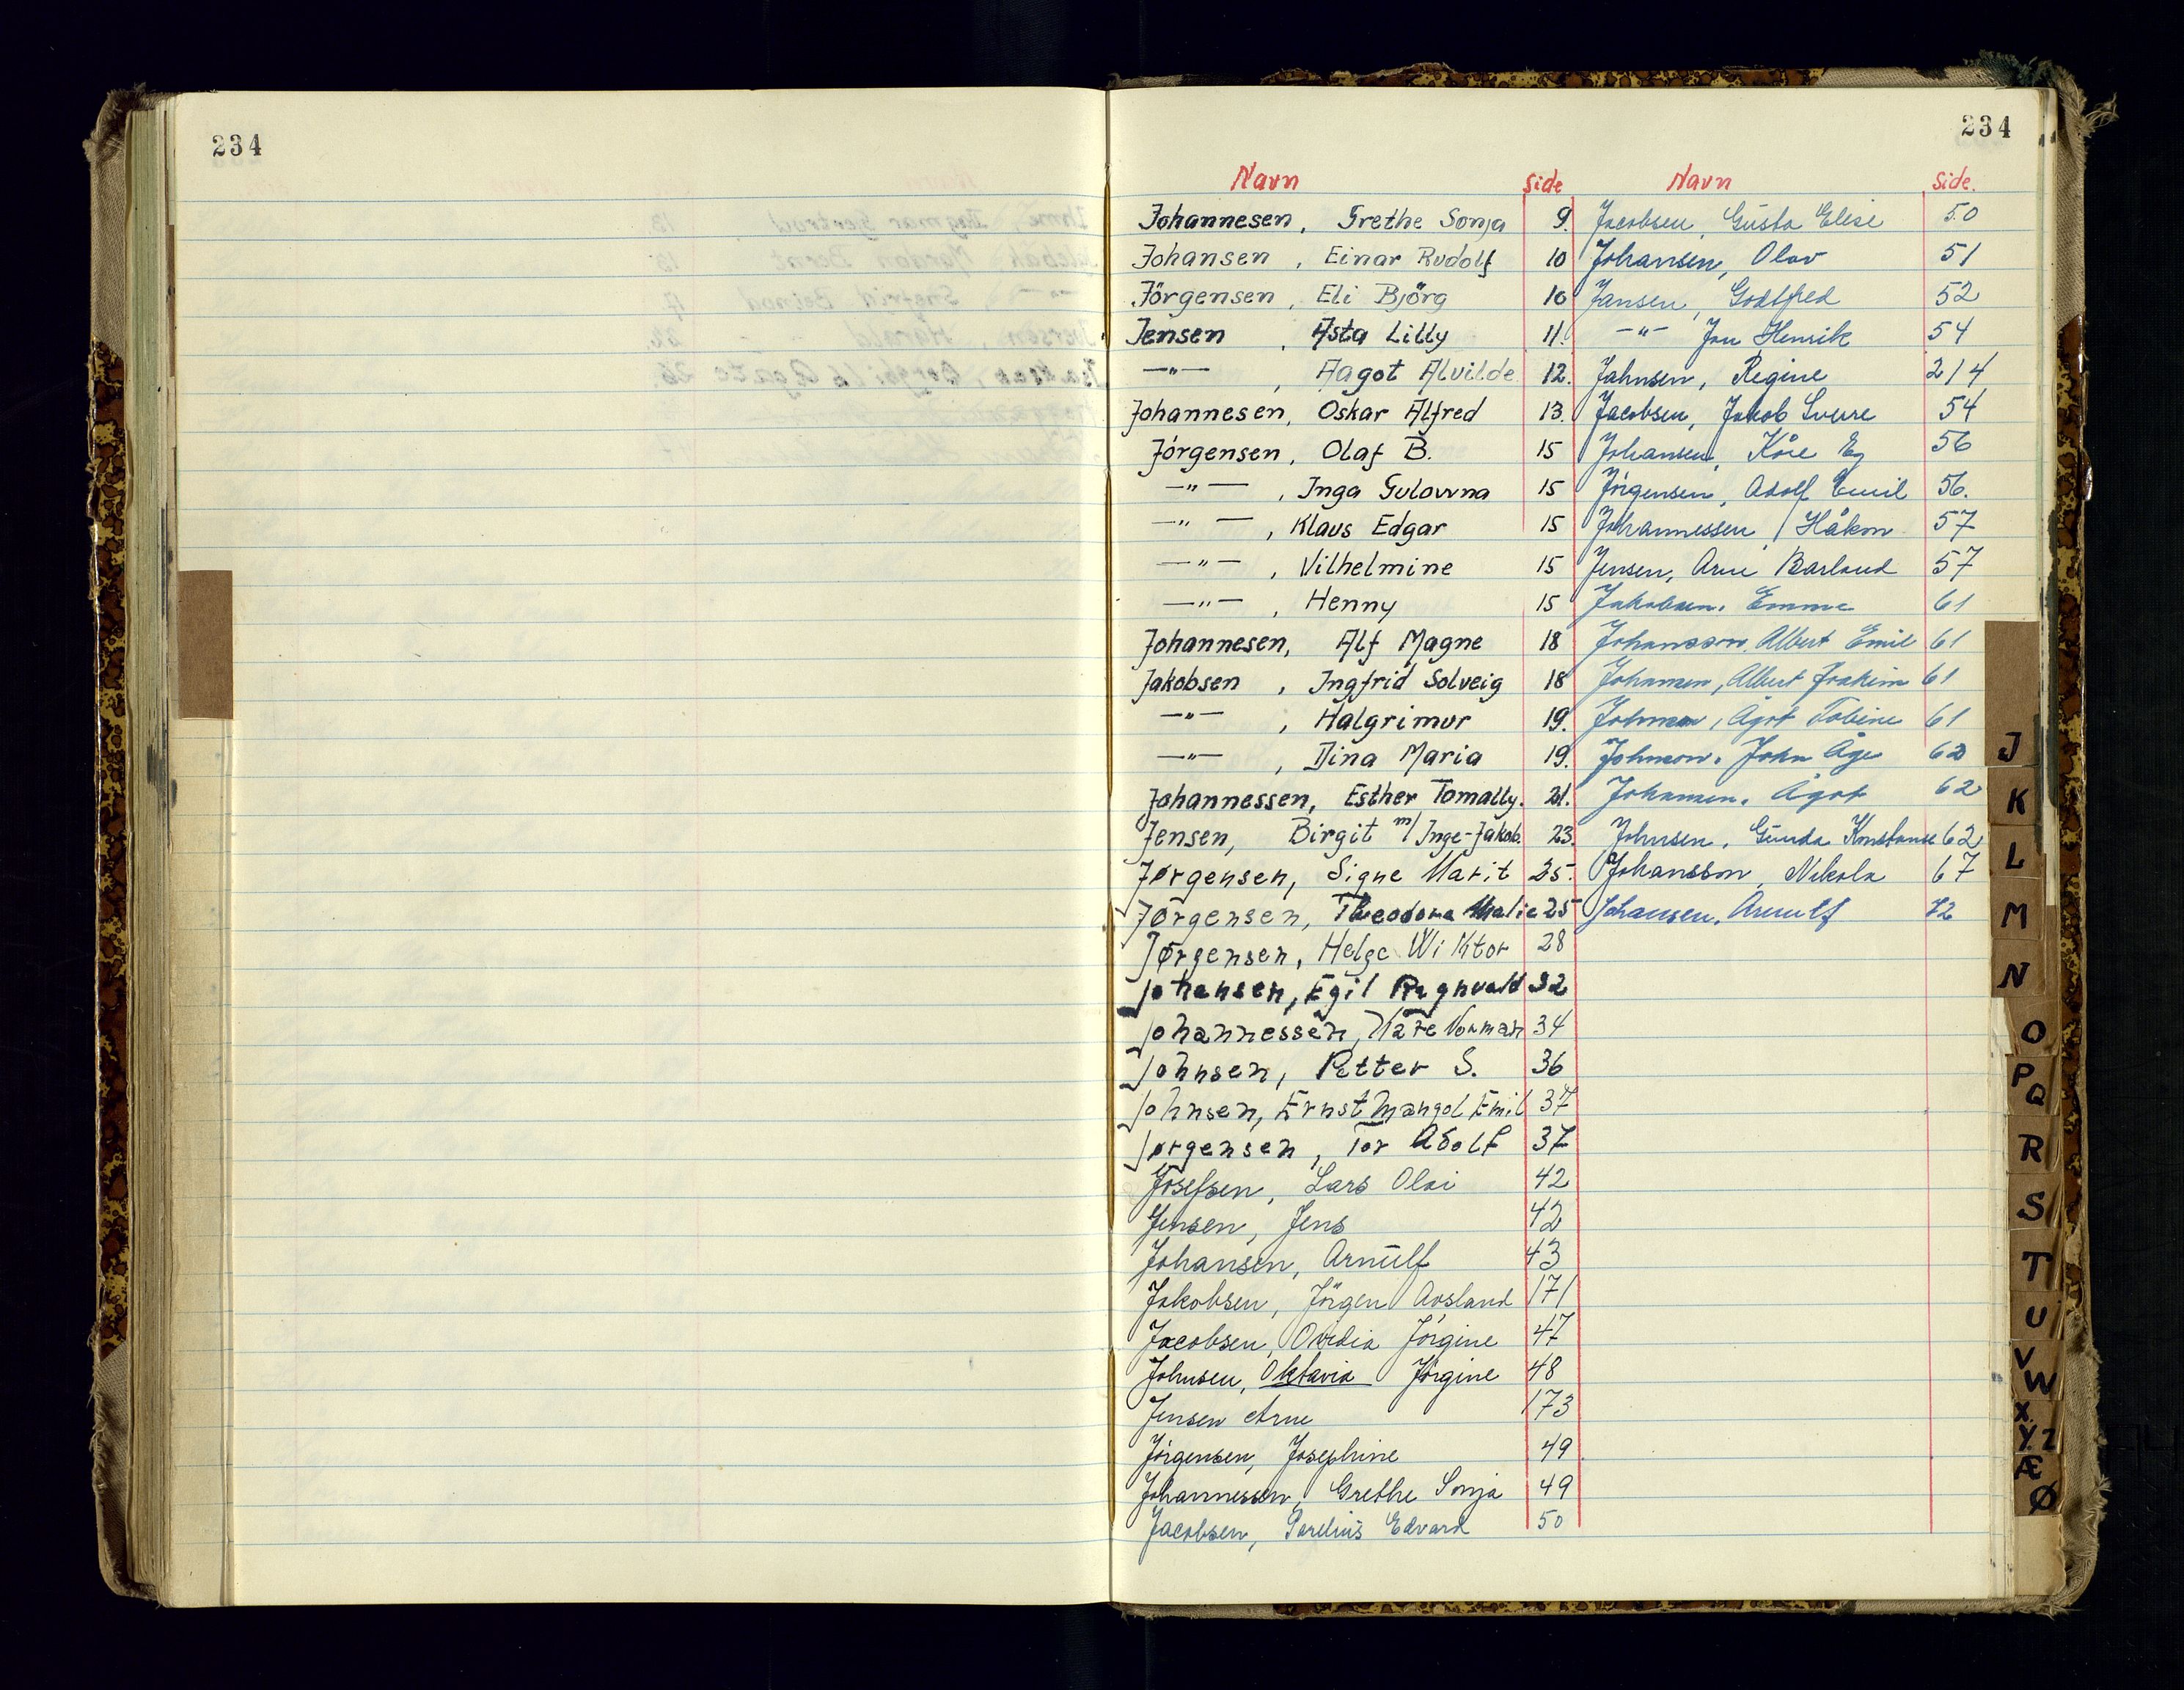 234
234
Navn Side Navn Side.
Johannesen, Grethe Sonja 9. Jacobsen, Gusta Elise 50
Johansen, Einar Rudolf 10 Johansen, Olav 51
Jörgensen, Eli Björg 10 Jansen, Godtfred 52
Jensen, Asta Lilly 11. —"— Jon Henrik 54
—"—, Aagot Alvilde 12. Jahnsen, Regine 214
Johannesen, Oskar Alfred 13. Jacobsen, Jakob Sverre 54
Jörgensen, Olaf B. 15 Johansen, Kåre Eg 56
—"—, Inga Gulovna 15 Jörgensen, Adolf Emil 56.
—"—, Klaus Edgar 15 Johannessen, Håkon 57
—"—, Vilhelmine 15 Jensen, Arne Barland 57
—"—, Henny 15 Jakobsen, Emma 61
Johannesen, Alf Magne 18 Johansson, Albert Emil 61
Jakobsen, Ingfrid Solveig 18 Johansen, Albert Joakim 61
—"—, Halgrimur 19. Ågot Tobine 61
—"—, Dina Maria 19. Johnson, John Åge 62
Johannessen, Esther Tomally. 21. Johansen, Ågot 62
Jensen, Birgit m/ Inge-Jakob. 23. Johnsen, Gunda Konstanse 62
Jørgensen, Signe Marit 25. Johansson, Nikola 67
Jørgensen, Theodora Malie 25 Johansen, Arnulf 72
Jørgensen, Helge Wiktor 28
Johansen, Egil Ragnvald 32
Johannessen, Kåre Norman 34
Johnsen, Petter S. 36
Johnsen, Ernst Mangol Emil 37
Jørgensen, Tor Adolf 37
Josefsen, Lars Olai 42
Jensen, Jens 42
Johansen, Arnulf 43
Jakobsen, Jörgen Avsland 171
Jacobsen, Ovidia Jörgine 47
Johnsen, Oktavia Jörgine 48
Jensen Arne 173
Jörgensen, Josephine 49
Johannessen, Grethe Sonja 49
Jacobsen, Edvard 50
J
K
L
M
N
O
P
Q
R
S
T
U
V
W
X
Y Z
Æ
Ø